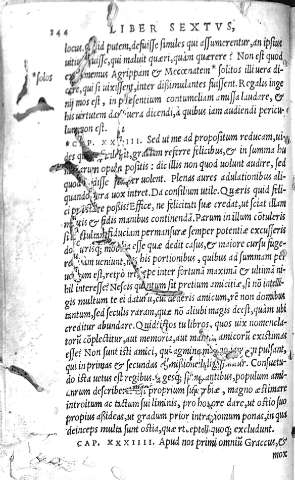 144 LIBER SEXTUS,
locus. quid putem, defuisse similes qui assumerentur, an ipsius
uitium fuisse, qui maluit queri, quàm quærere? Non est quod
existimemus Agrippam & Mecœnatem
*solos
*solitos illi uera di-
cere, qui si uixissent, inter dissimulantes fuissent. Regalis inge
nij mos est, in præsentium contumeliam amissa laudare, &
his uirtutem dare uera dicendi, à quibus iam audiendi pericu-
lum non est.
CAP. XXXIII. Sed ut me ad propositum reducam, ui-
des quàm facile sit, gratiam referre felicibus, & in summa hu
manarum opum positis: dic illis non quod uolunt audire, sed
quod audisse semper uolent. Plenas aures adulationibus ali-
quando uera uox intret. Da consilium utile. Quæris quid felici
præstare possis? Effice, ne felicitati suæ credat, ut sciat illam
multis & fidis manibus continendã. Parum in illum cõtuleris
si stultam fiduciam permansuræ semper potentiæ excusseris,
mobilia esse quæ dedit casus, & maiore cursu fuge-
re quàm ueniunt, nec his portionibus, quibus ad summam per
uentum est, retrò iri: sæpe inter fortunã maximã & ultimã ni-
hil interesse? Nescis quantum sit pretium amicitiæ, si nõ intelli-
gis multum te ei daturũ, cui dederis amicum, rẽ non domibus
tantum, sed seculis raram, quæ nõ aliubi magis deest, quàm ubi
creditur abundare. Quid? istos tu libros, quos uix nomenclato-
torũ cõplectitur, aut memoria, aut manus, amicorũ existimas
esse? Non sunt isti amici, qui agmine magno ianuam pulsant,
qui in primas & secundas admissiones digeruntur. Consuetu-
do ista uetus est regibus, regesq́; simulantibus, populum ami-
corum describere. proprium superbiæ, magno æstimare
introitum ac tactum sui liminis, pro honore dare, ut ostio suo
propius assideas, ut gradum prior intra domum ponas, in qua
deinceps multa sunt ostia, quæ receptos quoq; excludunt.
CAP. XXXIIII. Apud nos primi omniũ Gracchus, &
mox